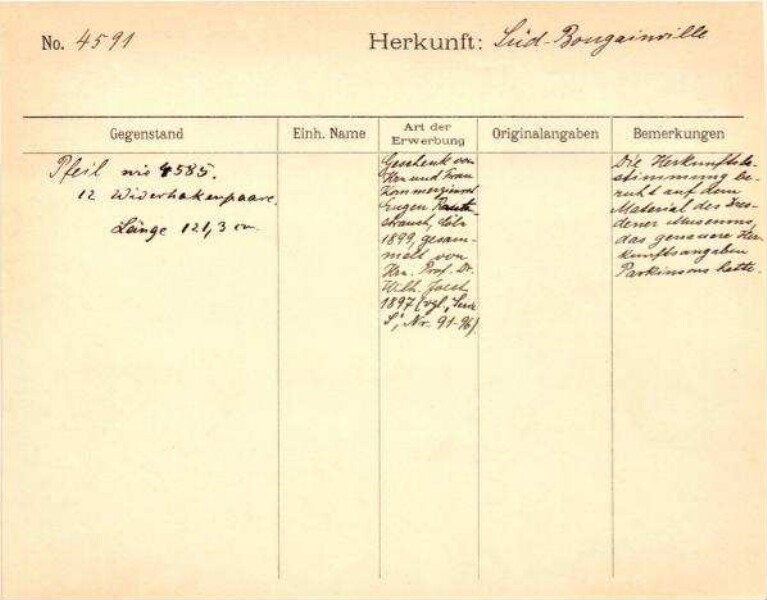 No. 4591
Herkunft: Süd-Bougainville
Gegenstand
Einh. Name
Art der
Erwerbung
Originalangaben
Bemerkungen
Pfeil wie 4585.
12 Widerhakenpaare.
Länge 121,3 cm
Geschenk von
Hrn und Frau
Kommerzienrat
Eugen Rautenstrauch, Cöln
1899, gesam-
melt von
Hrn. Prof. Dr.
Wilh. Joest
1897 (vgl.
Nr. 91-96)
Die Herkunftsbe-
stimmung be-
ruht auf dem
Material des Dres-
dener Museums,
das genauere Her-
kunftsangaben
Parkinsons hatte.